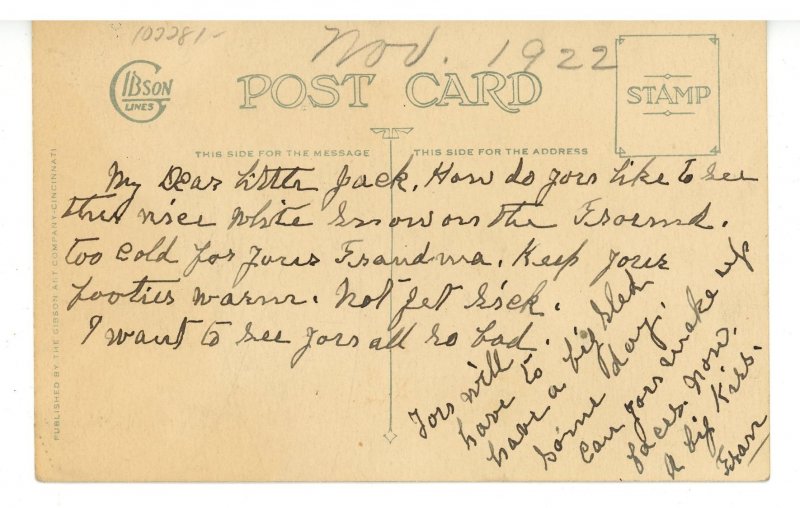 102281-
Nov. 1922
GIBSON
LINES
POST CARD
STAMP
THIS SIDE FOR THE MESSAGE
THIS SIDE FOR THE ADDRESS
PUBLISHED BY THE GIBSON ART COMPANY-CINCINNATI
My Dear Little Jack, How do you like to see
this nice White Snow on the Ground.
too cold for your Grandma. Keep your
footies warm. Not get sick.
I want to see you all so bad.
You will
have to
have a big sled
some day.
Can you make up
faces. now.
A big Kiss.
Gran